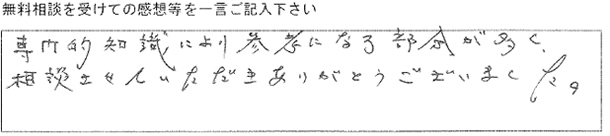 無料相談を受けての感想等を一言ご記入下さい
専門的知識により参考になる部分が多く、
相談させていただきありがとうございました。